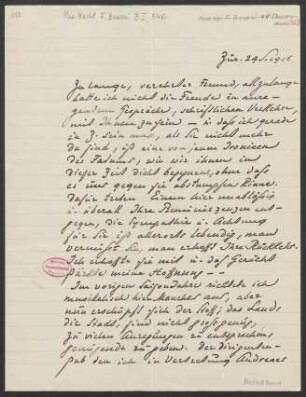 Mus. Nachl. F. Busoni B I
Zür. 24.S. 1916
Zu lange, verehrter Freund, allzulange
hatte ich nicht die Freude an anre-
gendem Gespräche, schriftlichem Verkehre
mit Ihnen zu sein - u. dass ich gerade
in Z. sein muss, als Sie nicht mehr
da sind, ist eine von jenen Ironieen
des Fatums, wie wir ihnen in
dieser Zeit dicht begegnen, ohne dass
es uns gegen sie abstumpfen könne.
Dafür treten einem hier unablässig
u. überall Ihre Reminiszenzen ent-
gegen, die Sympathie u. Achtung
für Sie ist allerorts lebendig, man
vermisst Sie, man erhofft Ihre Rückkehr.
Ich erhoffte sie mit u. das Gerücht
stärkte meine Hoffnung - -
Im vorigen Saisonjahre richtete ich
musikalisch hier Manches aus, aber
nun erschöpft sich der Stoff; das Land,
die Stadt, sind nicht gross genug,
zu vielen Anregungen zu entsprechen,
genügende zu geben. Der Dirigenten-
part den ich in Vertretung Andreaes